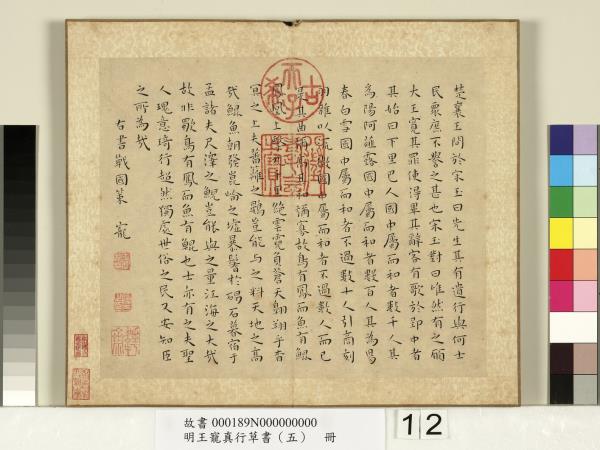 楚襄王問於宋玉曰先生其有遺行與何士
民衆庶不譽之甚也宋玉對曰唯然有之願
大王寬其罪使得畢其辭客有歌於郢中者
其始曰下里巴人國中屬而和者數千人其
為陽阿薤露國中屬而和者數百人其為陽
春白雪國中屬而和者不過數十人引商刻
羽雜以流徵國中屬而和者不過數人而已
是其曲彌高其和彌寡故鳥有鳳而魚有鯤
鳳凰上擊九千里絕雲霓負蒼天翱翔乎杳
冥之上夫藩籬之鷃豈能與之料天地之高
哉鯤魚朝發崑崙之墟暴鬐於碣石暮宿于
孟諸夫尺澤之鯢豈能與之量江海之大哉
故非獨鳥有鳳而魚有鯤也士亦有之夫聖
人瑰意琦行超然獨處世俗之民又安知臣
之所為哉
右書戰國策 寵
古希天子
故書 000189N000000000
明王寵真行草書（五） 冊
12